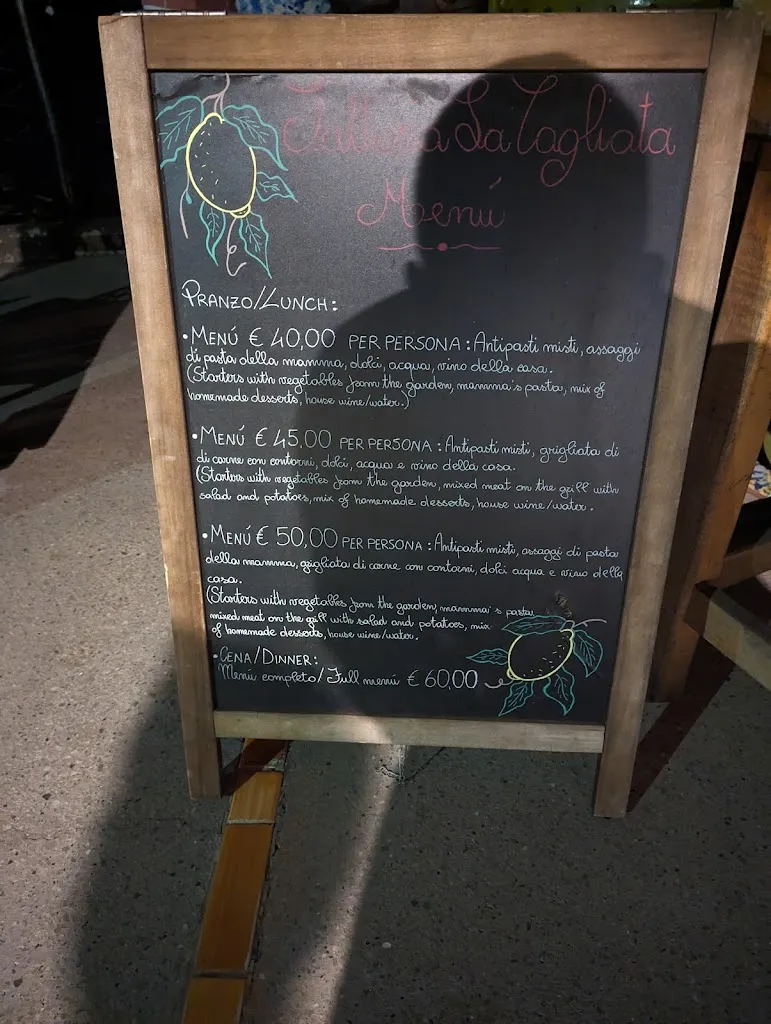 Fattoria La Tagliata
Menú
PRANZO/LUNCH:
• MENÚ € 40,00 PER PERSONA: Antipasti misti, assaggi
di pasta della mamma, dolci, acqua, vino della casa.
(Starters with vegetables from the garden, mamma's pasta, mix of
homemade desserts, house wine/water.)
• MENÚ € 45,00 PER PERSONA: Antipasti misti, grigliata di
di carne con contorni, dolci, acqua e vino della casa.
(Starters with vegetables from the garden, mixed meat on the grill with
salad and potatoes, mix of homemade desserts, house wine/water.
• MENÚ € 50,00 PER PERSONA: Antipasti misti, assaggi di pasta
della mamma, grigliata di carne con contorni, dolci acqua e vino della
casa.
(Starters with vegetables from the garden, mamma's pasta,
mixed meat on the grill with salad and potatoes, mix
of homemade desserts, house wine/water.
• CENA/DINNER:
Menú completo/Full menú € 60,00